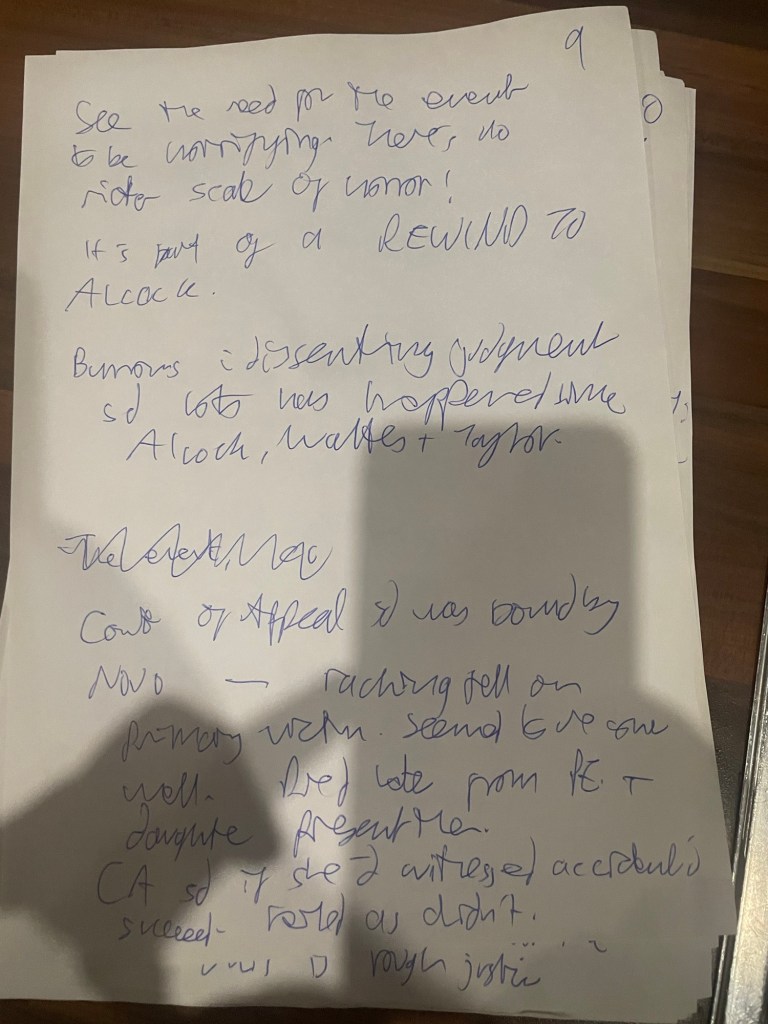 9
See the need for the event
to be horrifying. Here, no
richter scale of horror!
It's part of a REWIND TO
ALCOCK.
Burrows : dissenting judgment
sd lots has happened since
Alcock, Walters + Taylor.
The event,
Court of Appeal sd was bound by
Novo — racking fell on
primary victim. Seemed to be some
well. Died late from PE. +
daughter present then.
CA sd if she'd witnessed accident
succeed. Failed as didn't.
rough justice